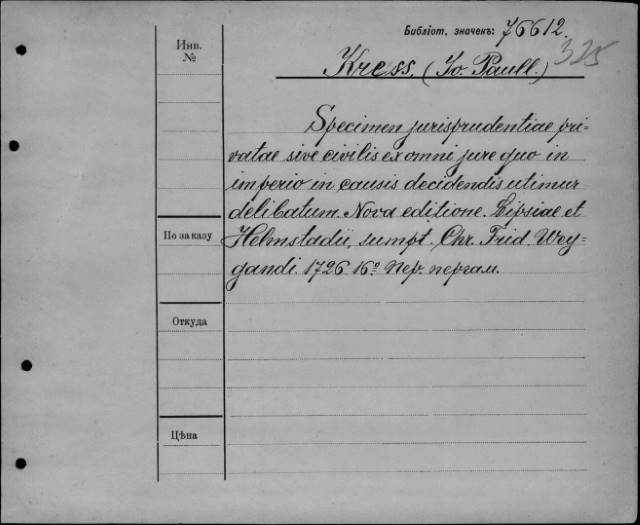 Библіот. значекъ: 76612.
325
Инв.
№
Kress. (Jo. Paull.)
Specimen jurisprudentiae pri-
vatae sive civilis ex omni jure quo in
imperio in causis decidendis utimur
delibatum. Nova editione. Lipsiae et
По заказу
Helmstadii, sumpt. Chr. Frid. Wey-
gandi. 1726 16° Пер. пергам.
Откуда
Цѣна